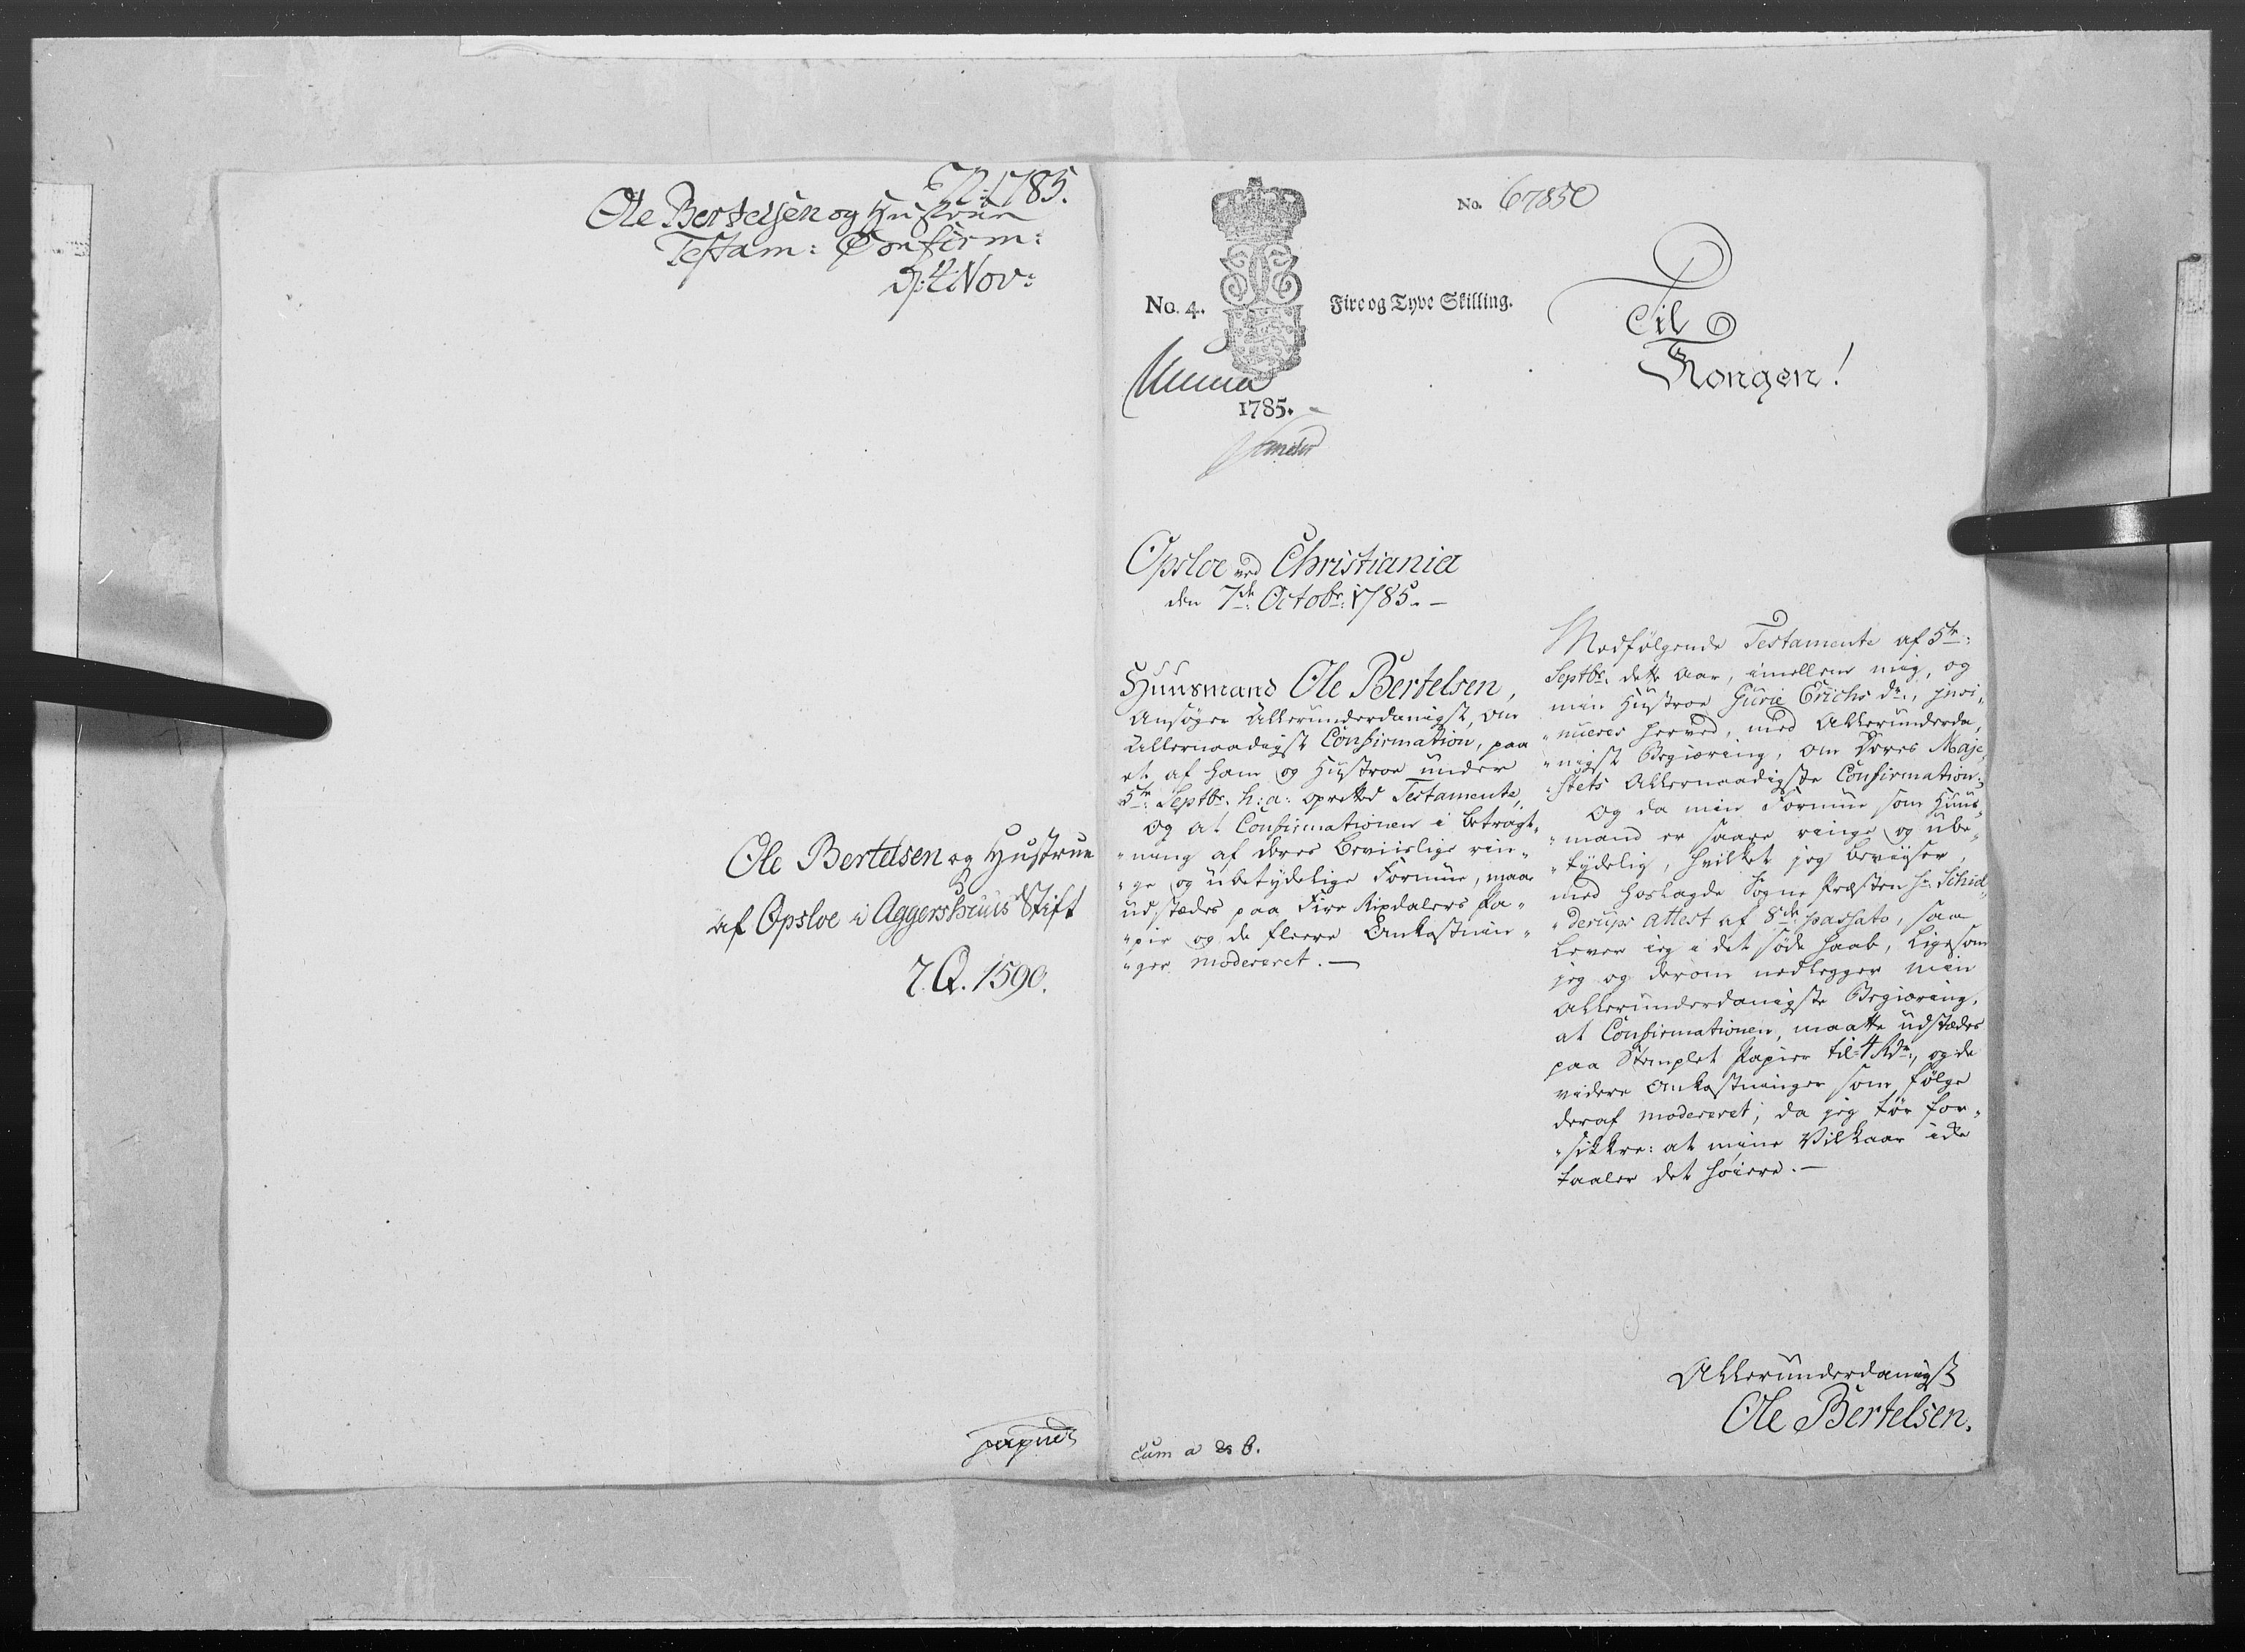 672. 1785.
Ole Bertelsen og Hustrue
Testam: Confirm:
D: 4 Nov:
Ole Bertelsen og Hustrue
af Opsloe i Aggershuus Stift
7. Q. 1590.
No. 67850
No. 4. Fire og Tyve Skilling.
1785.
Til
Kongen!
Opsloe ved Christiania
den 7de Octobr: 1785. —
Huusmand Ole Bertelsen,
Ansøger Allerunderdanigst, om
Allernaadigst Confirmation, paa
et af ham og Hustroe under
5te Septbr. h: a: opretted Testamente,
og at Confirmationen i betragt„
„ning af deres beviislige rin„
„ge og ubetydelige Formue, maa
udstædes paa Fire Rixdalers Pa„
„pir og de fleere Omkostnin„
„ger modereret. —
cum a & b.
Medfølgende Testamente af 5te:
Septbr. dette Aar, imellem mig, og
min Hustroe Gurie Erichs dr., insi„
„nueres herved, med Allerunderda„
„nigst Begiæring, om Deres Maje„
„stets Allernaadigste Confirmation„
Og da min Formue som Huus„
„mand er saare ringe og ube„
„tydelig, hvilket jeg beviiser,
med hoslagde Sogne Præsten Hr. Schiel„
„derups Attest af 8de passato, saa
lever jeg i det søde Haab, ligesom
jeg og derom nedlegger min
Allerunderdanigste Begiæring,
at Confirmationen, maatte udstædes
paa Stemplet Papier til 4 Rdr., og de
videre Omkostninger som følge
deraf modereret; da jeg tør for„
„sikkre: at mine Vilkaar icke
taaler det høiere. —
Allerunderdanigst
Ole Bertelsen.